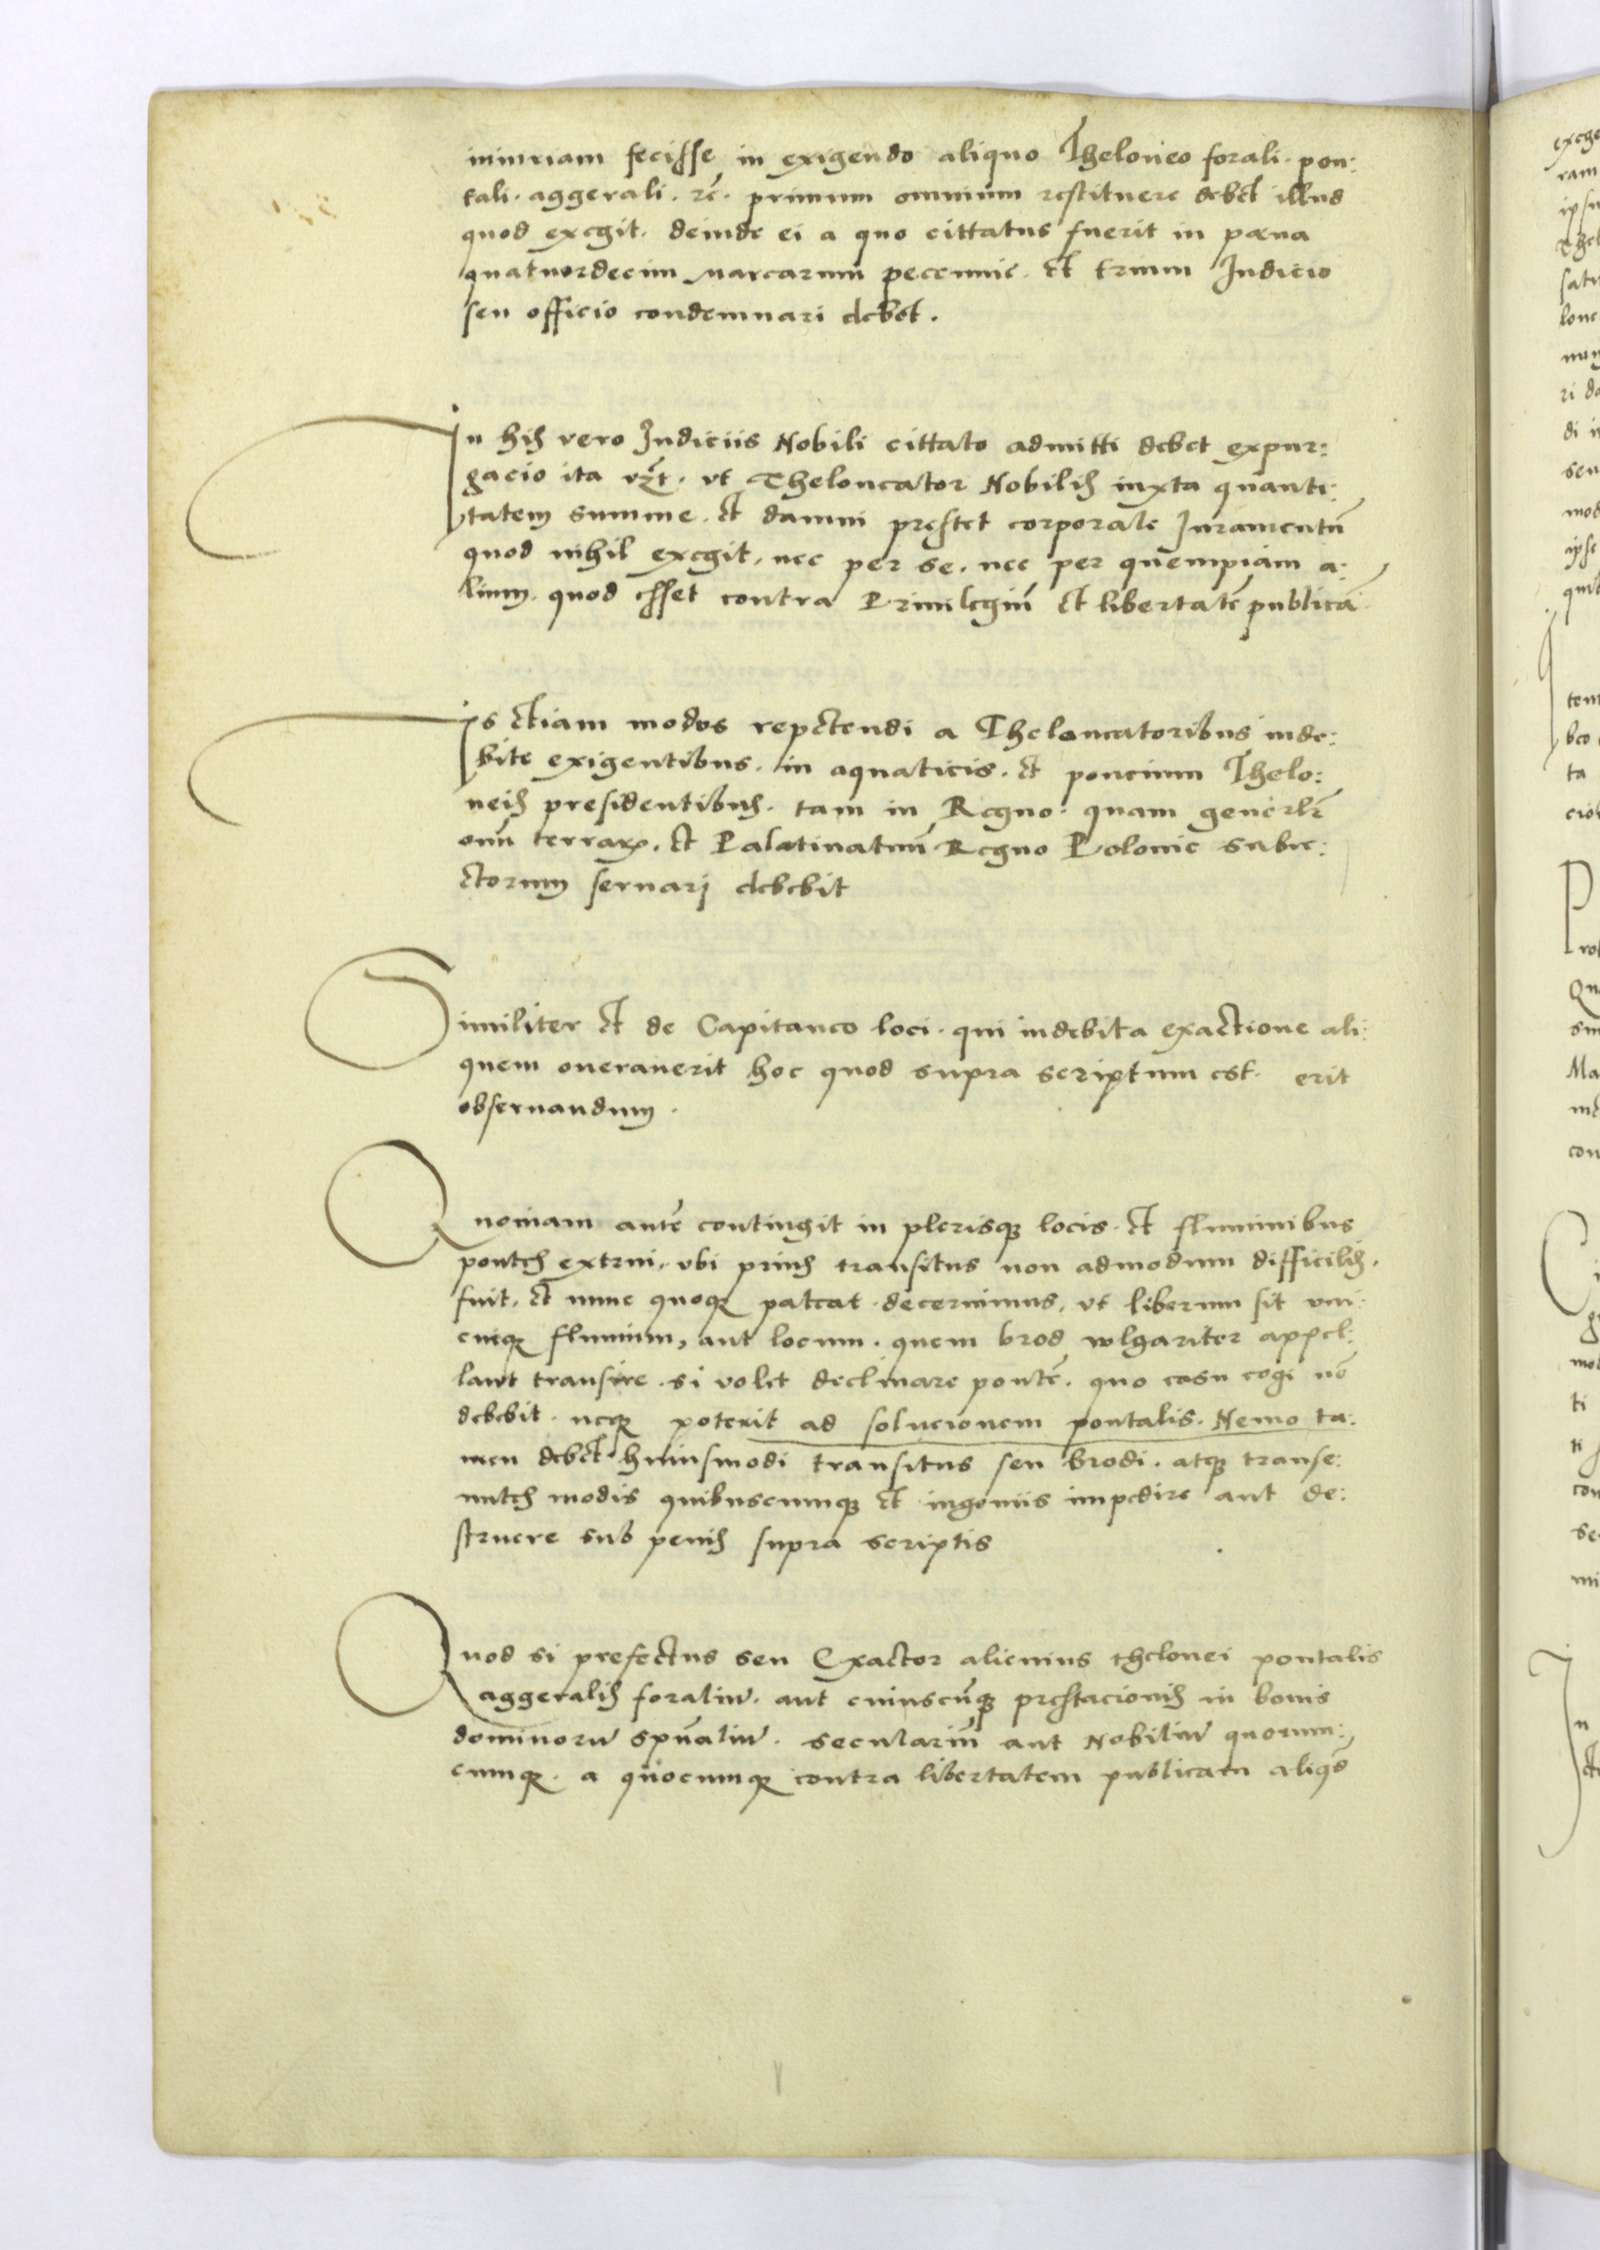 iniuriam fecisse in exigendo aliquo Theloneo forali · pon:
tali · aggerali · rc̄ · primum omnium restituere debet illud
quod exegit · deinde ei a quo cittatus fuerit in pœna
quatuordecim marcarum pecunie · et trium Iudicio
seu officio condemnari debet ·
In his vero Iudiciis Nobili cittato admitti debet expur:
gacio ita vꝫt · vt Theloneator Nobilis iuxta quanti:
tatem summe · et damni prestet corporale Iuramentū
quod nihil exegit, nec per se, nec per quempiam a:
lium · quod esset contra Priuilegiū et libertatē publicā
Is etiam modus repetendi a Theloneatoribus inde:
bite exigentibus · in aquaticis · et poncium Thelo:
neis presidentibus · tam in Regno · quam generlr̄
om̄ terraꝝ · et Palatinatuū Regno Polonie subie:
ctorum seruari debebit
Similiter et de Capitaneo loci · qui indebita exactione ali:
quem onerauerit hoc quod supra scriptum est · erit
obseruandum ·
Quoniam autē contingit in plerisqꝫ locis · et fluminibus
pontes extrui, vbi prius transitus non admodum difficilis ·
fuit, et nunc quoqꝫ pateat · decernimus, vt liberum sit vni:
cuiqꝫ flumium, aut locum · quem brod wlgariter appel:
lant transire · si volet declinare pontē · quo casu cogi nō
debebit · neqꝫ poterit ad solucionem pontalis · Nemo ta:
men debet huiusmodi transitus seu brodi · atqꝫ transe:
untes modis quibuscumqꝫ et ingeniis impedire aut de:
struere sub penis supra scriptis
Quod si prefectus seu Exactor alicuius thelonei pontalis
aggeralis foraliū · aut cuiuscūqꝫ prestacionis in bonis
dominorū spūaliū · seculariū aut Nobiliū quorum:
cumqꝫ · a quocumqꝫ contra libertatem publicam aliqd̄